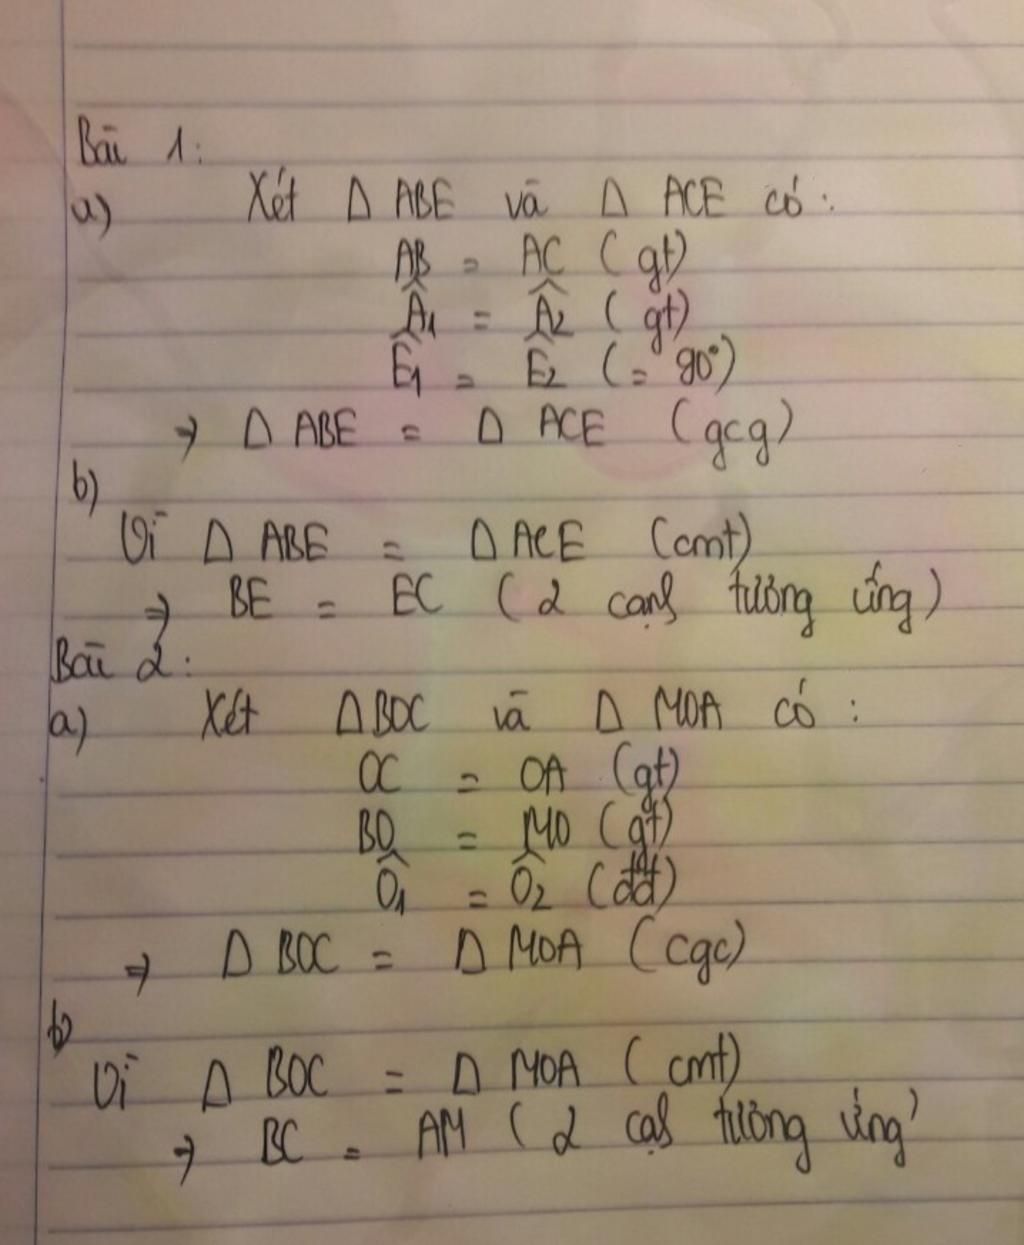 Bài 1:
a) Xét Δ ABE và Δ ACE có:
AB = AC (gt)
Â1 = Â2 (gt)
Ê1 = Ê2 (= 90°)
→ Δ ABE = Δ ACE (gcg)
b)
Vì Δ ABE = Δ ACE (cmt)
⇒ BE = EC (2 cạnh tương ứng)
Bài 2:
a) Xét Δ BOC và Δ MOA có:
OC = OA (gt)
BO = MO (gt)
Ô1 = Ô2 (đđ)
⇒ Δ BOC = Δ MOA (cgc)
b)
Vì Δ BOC = Δ MOA (cmt)
⇒ BC = AM (2 cah tương ứng)